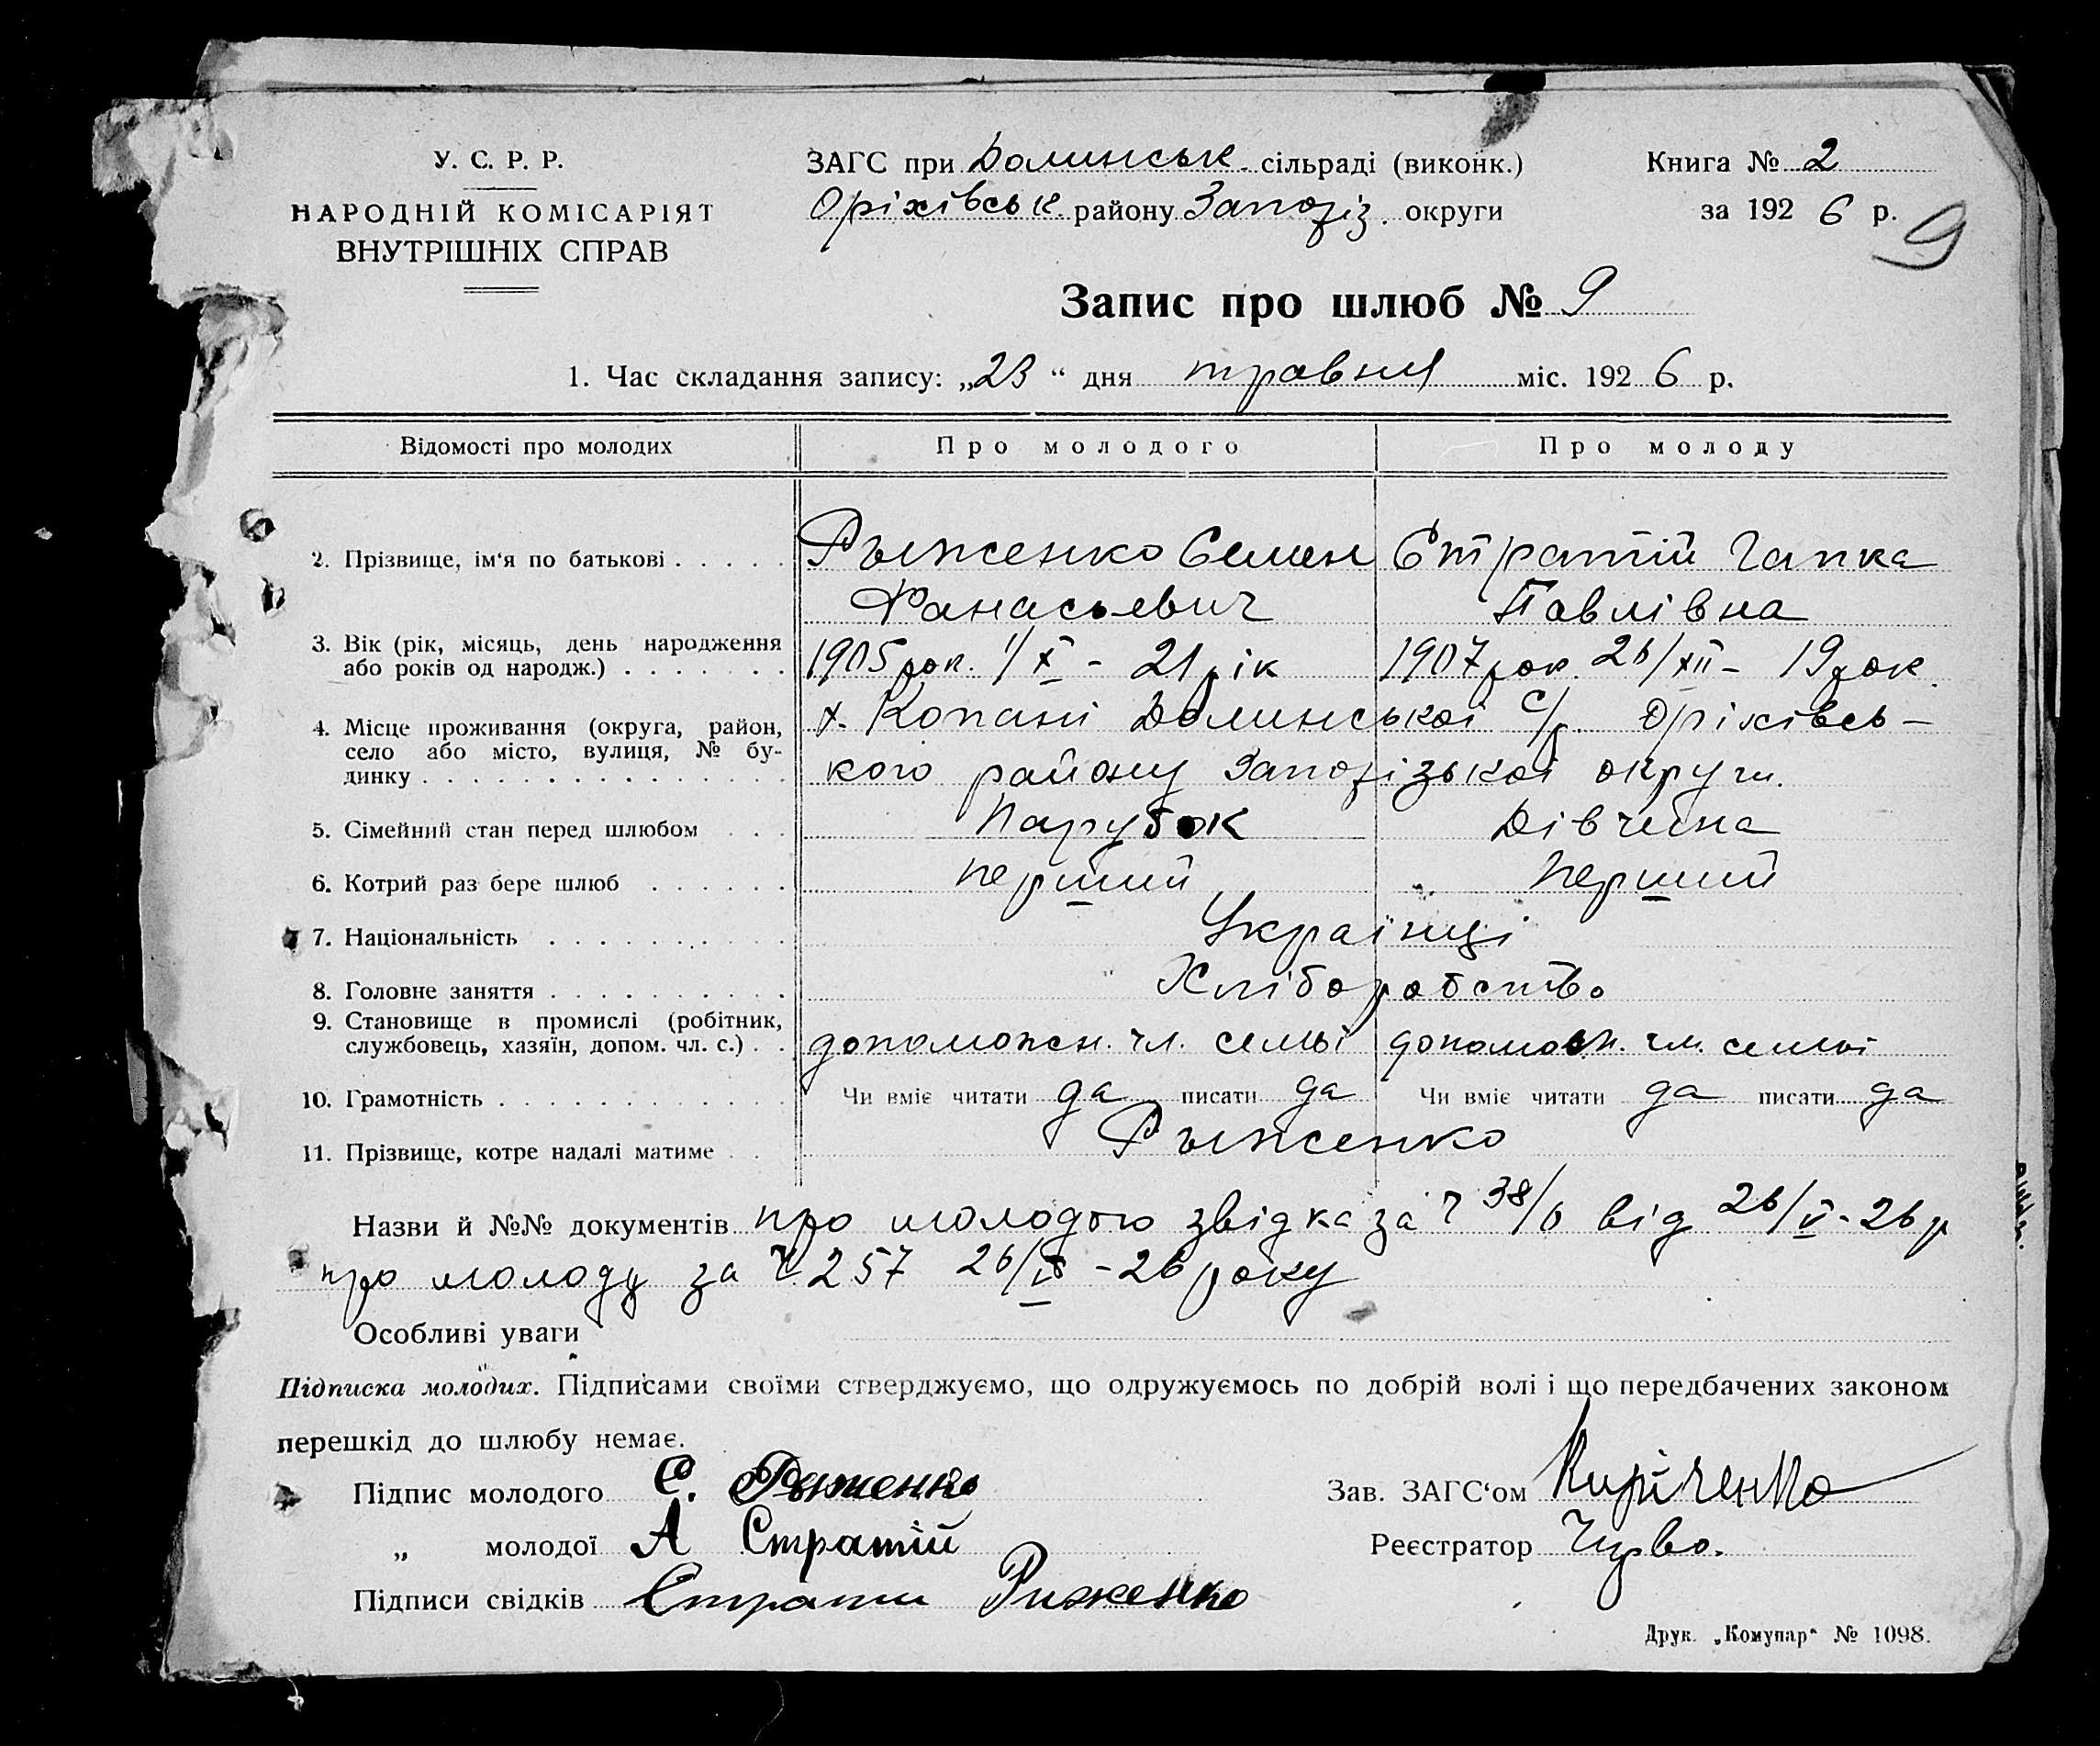 У. С. Р. Р.
НАРОДНІЙ КОМІСАРІЯТ
ВНУТРІШНІХ СПРАВ
ЗАГС при Долинськ. сільраді (виконк.)
Оріхівськ. району Запоріз. округи
Книга № 2
за 1926 р.
9
Запис про шлюб № 9
1. Час складання запису: „23“ дня травня міс. 1926 р.
Відомості про молодих Про молодого Про молоду
2. Прізвище, ім'я по батькові Рыженко Семен Стратій Гапка
Фанасьевич Павлівна
3. Вік (рік, місяць, день народження
або років од народж.) 1905 рок. 1/X - 21 рік 1907 рок. 26/XII - 19 рок.
4. Місце проживання (округа, район,
село або місто, вулиця, № бу-
динку
х. Копані Долинської с/р. Оріхівсь-
кого району Запорізької округи.
5. Сімейний стан перед шлюбом Парубок Дівчина
6. Котрий раз бере шлюб перший перший
7. Національність Українці
8. Головне заняття Хліборобство
9. Становище в промислі (робітник,
службовець, хазяїн, допом. чл. с.) допоможн. чл. семьі допоможн. чл. семьі
10. Грамотність Чи вміє читати да писати да Чи вміє читати да писати да
11. Прізвище, котре надалі матиме Рыженко
Назви й №№ документів про молодого звідка за Ч 38/0 від 26/V - 26 р
про молоду за Ч 257 26/V - 26 року
Особливі уваги
Підписка молодих. Підписами своїми стверджуємо, що одружуємось по добрій волі і що передбачених законом
перешкід до шлюбу немає.
Підпис молодого С. Рыженко
„ молодої А Стратій
Підписи свідків Страти Риженко
Зав. ЗАГС'ом Кириченко
Реєстратор
Друк. „Комунар“ № 1098.